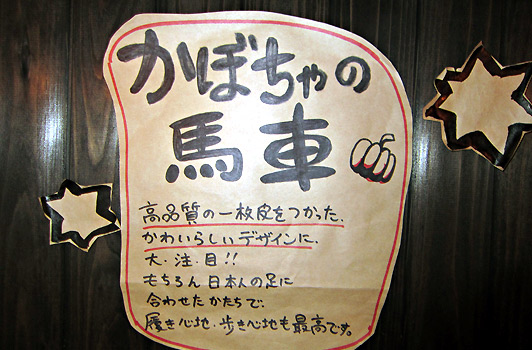 かぼちゃの
馬車
高品質の一枚皮をつかった、
かわいらしいデザインに、
大・注・目!!
もちろん日本人の足に
合わせたかたちで、
履き心地・歩き心地も最高です。